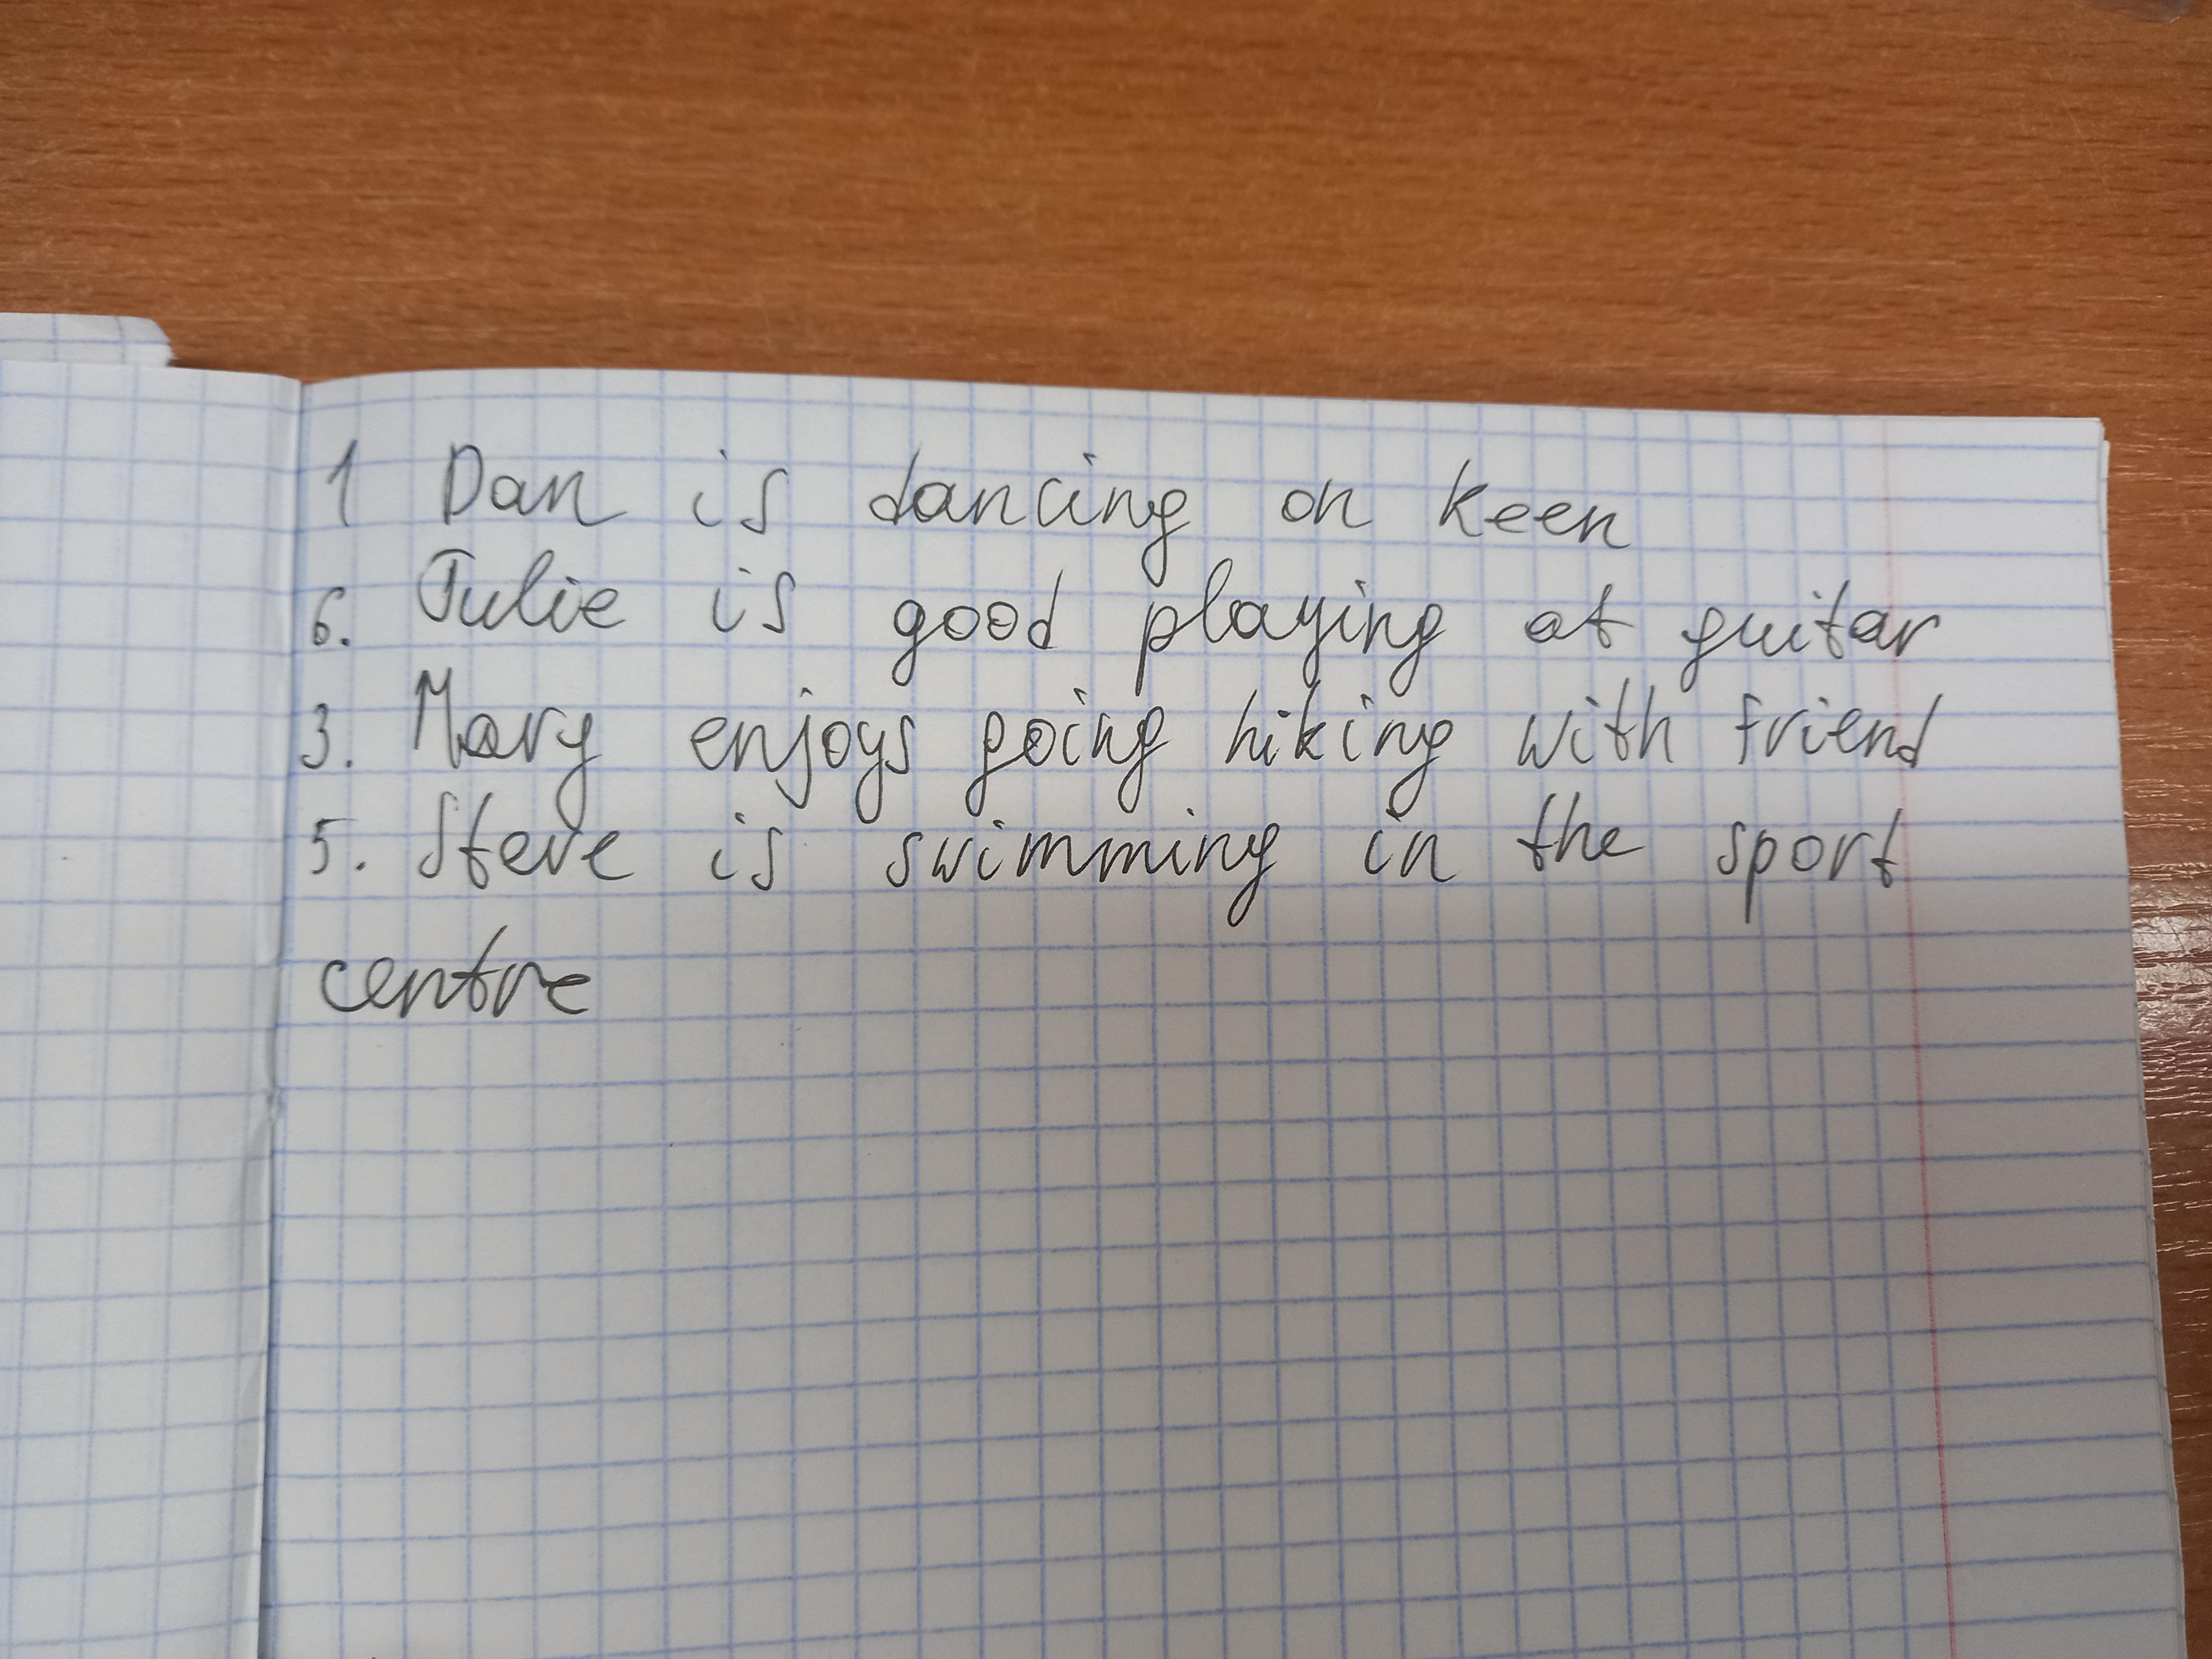 1 Dan is dancing on keen
6. Julie is good playing at guitar
3. Mary enjoys going hiking with friend
5. Steve is swimming in the sport
centre